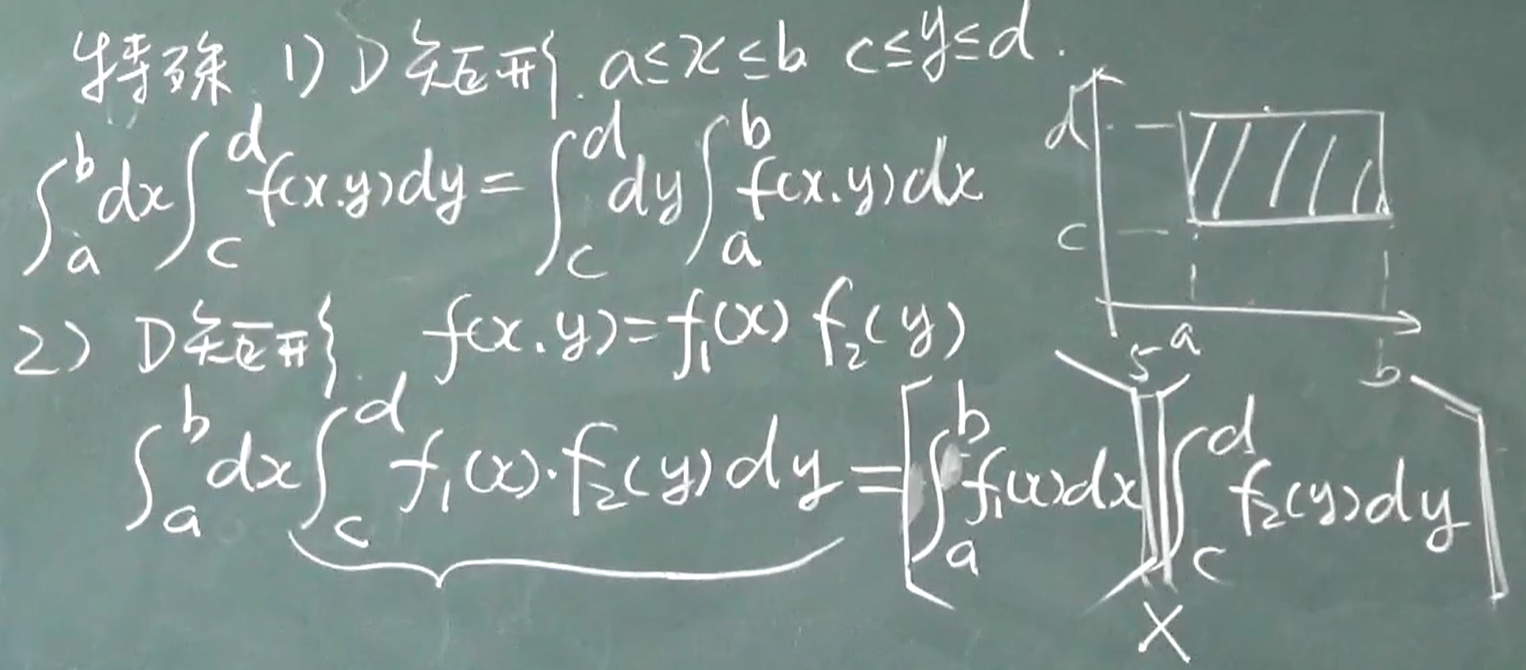 特殊 1) D矩形. a≤x≤b c≤y≤d.
∫_a^b dx ∫_c^d f(x.y)dy = ∫_c^d dy ∫_a^b f(x.y)dx
2) D矩形. f(x.y)=f₁(x) f₂(y)
∫_a^b dx ∫_c^d f₁(x)·f₂(y)dy = [∫_a^b f₁(x)dx][∫_c^d f₂(y)dy]
X
d
c
a
b